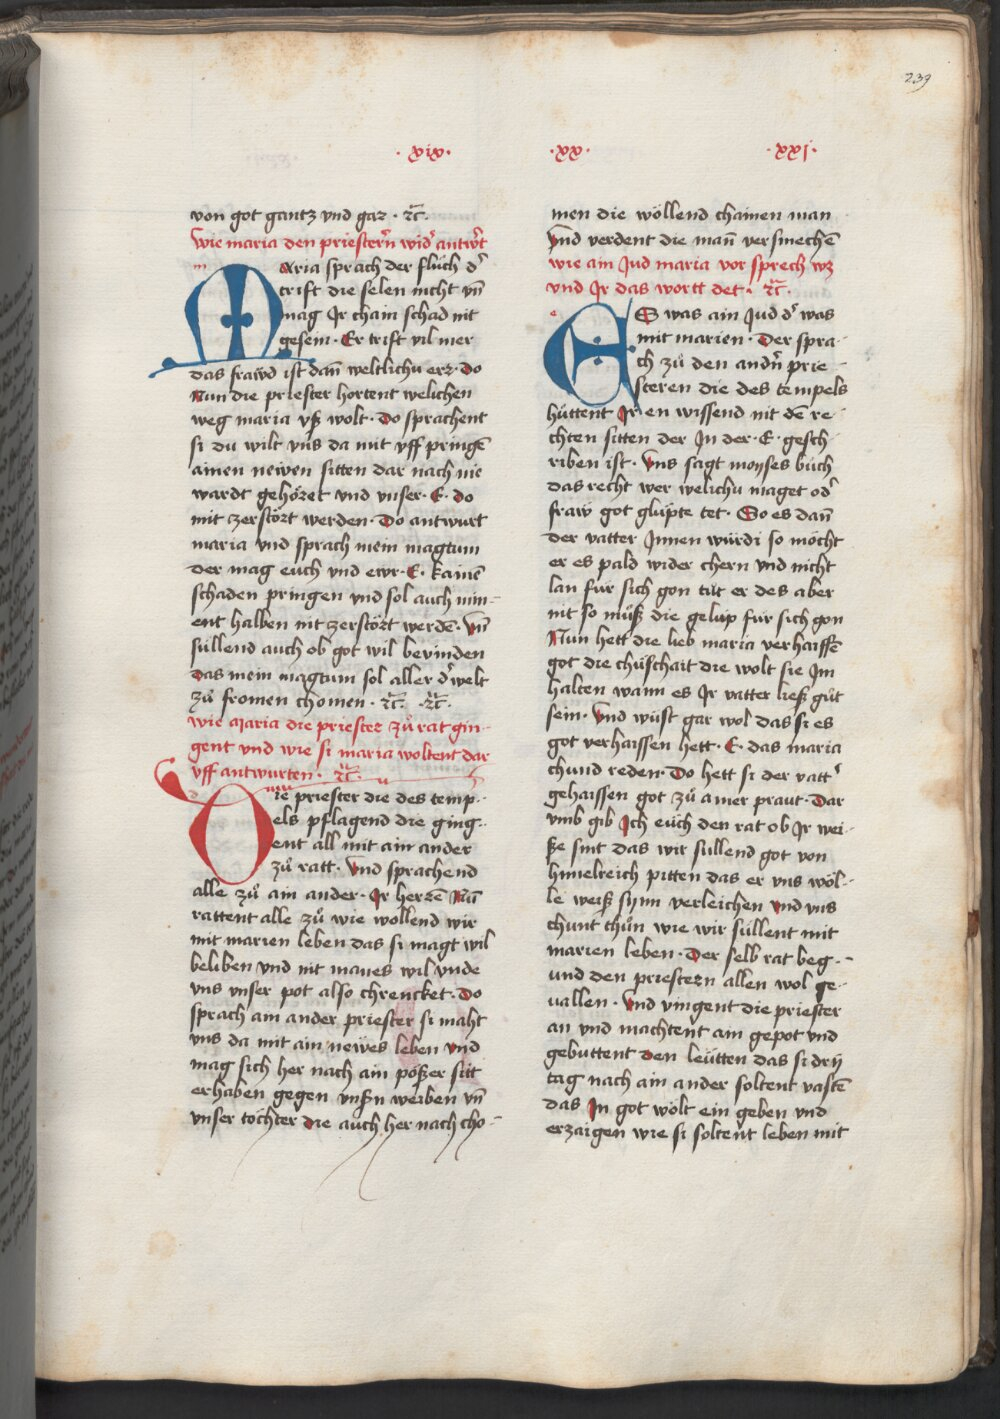 239
·xix·
·xx·
·xxj·
von got gantz vnd gar · ꝛc̃·
wie maria den priestern̄ wid᷑ antw᷑t
Maria sprach der fluch d᷑
trift die selen nicht vn̄
mag Jr chain schad nit
gesein · Er trift vil mer
das frawd ist dan̄ weltlichu erꝛ · do
Nun die priester hortent welichen
weg maria vß wolt · Do sprachent
si du wilt vns da mit vff pringē
ainen newen sitten dar nach nie
wardt gehöret vnd vnser · E · do
mit zerstört werden · Do antwurt
maria vnd sprach mein magtum
der mag euch vnd ewr · E · kainē
schaden pringen vnd sol auch nin-
ent halben nit zerstört werdē · Vn̄
süllend auch ob got wil bevinden
Das mein magtum sol aller d᷑ welt
zů fromen chomen · ꝛc̃ · ꝛc̃·
wie maria die priester zů rat gin-
gent vnd wie si maria woltent dar
vff antwurten · ꝛc̃
Die priester die des temp-
els pflagend die ging-
ent all mit ain ander
zů ratt · Vnd sprachend
alle zů ain ander · Jr herrē Nū
rattent alle zů wie wollend wir
mit marien leben das si magt wil
beliben vnd nit manes wil vnde
vns vnser pot also chrencket · Do
sprach ain ander priester si maht
vns da mit ain newes leben vnd
mag sich her nach ain pößer sitt
erhaben gegen vnßn weiben vn̄
vnser töchter die auch her nach cho-
men die wöllend chainen man
Vnd verdent die man̄ versmechē
wie ain Jud maria vor sprech wz
vnd Jr das wortt det · ꝛc̃·
ES was ain Jud d᷑ was
mit marien · Der spra-
ch zů den andn̄ prie-
steren die des tempels
hüttent Jr en wissend nit dē re-
chten sitten der Jn der · E · gesch
riben ist · Vns sagt moyses buch
das recht wer welichu maget od᷑
fraw got glüpte tet · So es dan̄
der vatter Jnnen würdi so möcht
er es pald wider chern vnd nicht
lan fur sich gon tät er des aber
nit so můß die gelup für sich gon
Nun hett die lieb maria verhaissē
got die chüschait die wolt sie Jm
halten wann es Jr vatter ließ gůt
sein · Vnd wüst gar wol das si es
got verhaissen hett · E · das maria
chund reden · Do hett si der vatt᷑
gehaissen got zů ainer praut · Dar
vmb gib Jch euch den rat ob Jr wei-
ße sint das wir süllend got von
himelreich pitten das er vns wöl-
le weiß synn verleichen vnd vns
chunt thůn wie wir süllent mit
marien leben · Der selb rat beg-
und den priestern allen wol ge-
uallen · Vnd vingent die priester
an vnd machtent ain gepot vnd
gebuttent den leütten das si drij
tag nach ain ander soltent vastē
das Jn got wölt ein geben vnd
erzaigen wie si soltent leben mit